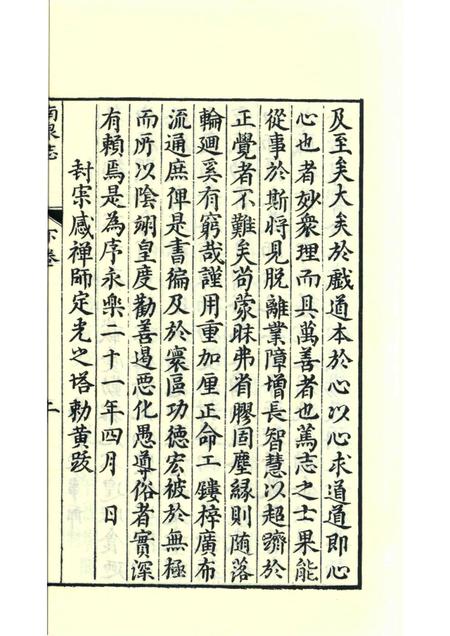 及至矣大矣於戲道本於心以心求道道即心
心也者妙衆理而具萬善者也篤志之士果能
從事於斯將見脱離業障增長智慧以超躋於
正覺者不難矣苟蒙昧弗省膠固塵縁則随落
輪廻奚有窮哉謹用重加厘正命工鏤梓廣布
流通庶俾是書徧及於寰區功德宏被於無極
而所以陰翊皇度勸善遏惡化愚導俗者實深
有頼焉是為序永樂二十一年四月 日
封寀感禅師定光之塔勅黄跋
南泉志
下卷
二